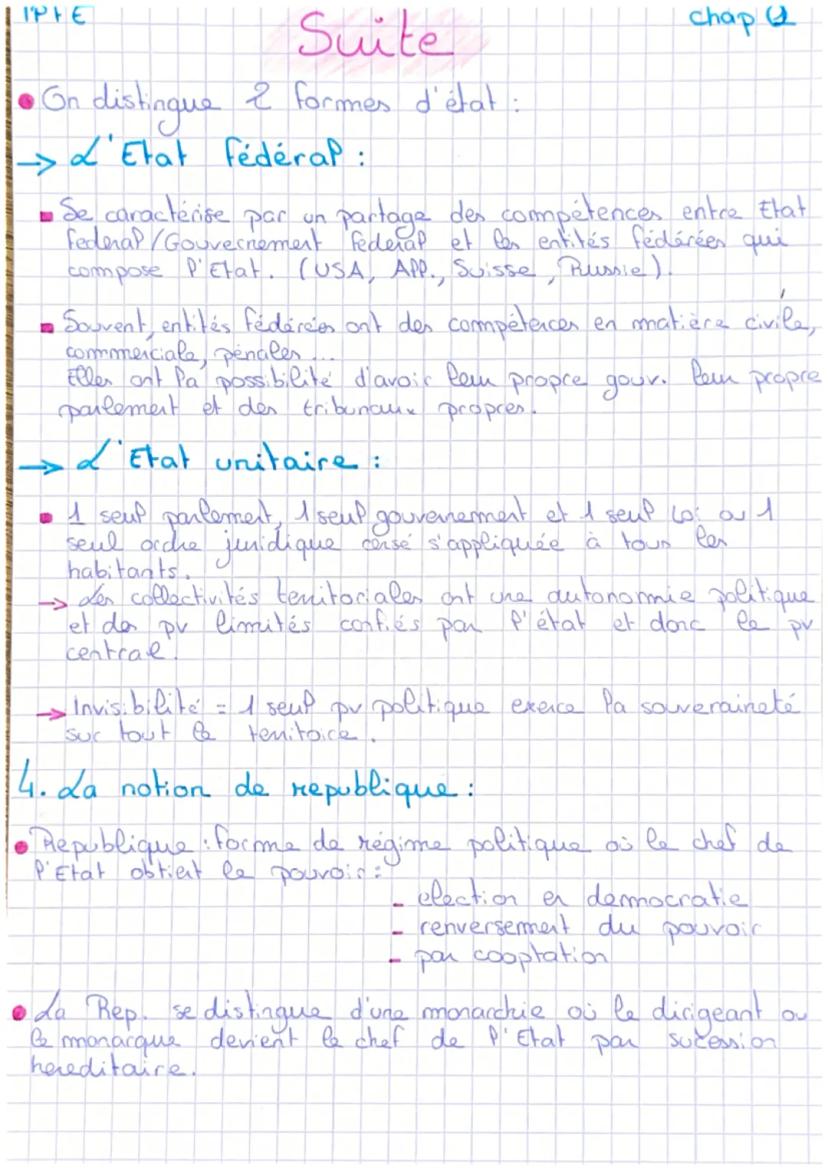 IPE
chap 1
Suite
On distingue 2 formes d'état :
→ L'Etat fédéral :
Se caractérise par un partage des compétences entre Etat
federal/Gouvernement federal et les entités fédérées qui
compose l'Etat. (USA, All., Suisse, Russie).
Souvent, entités fédérées ont des compétences en matière civile,
commerciale, pénales ...
Elles ont la possibilité d'avoir leur propre gouv. leur propre
parlement et des tribunaux propres.
→ L'Etat unitaire :
1 seul parlement, 1 seul gouvernement et 1 seul loi ou 1
seul ordre juridique censé s'appliquée à tous les
habitants.
→ Les collectivités territoriales ont une autonomie politique
et des pv limités confiés par l'état et donc le pv
central.
→ Invisibilité = 1 seul pv politique exerce la souveraineté
sur tout le territoire.
4. La notion de republique :
Republique : forme de régime politique où le chef de
l'Etat obtient le pouvoir :
- election en democratie
- renversement du pouvoir
- par cooptation
La Rep. se distingue d'une monarchie où le dirigeant ou
le monarque devient le chef de l'Etat par sucession
hereditaire.